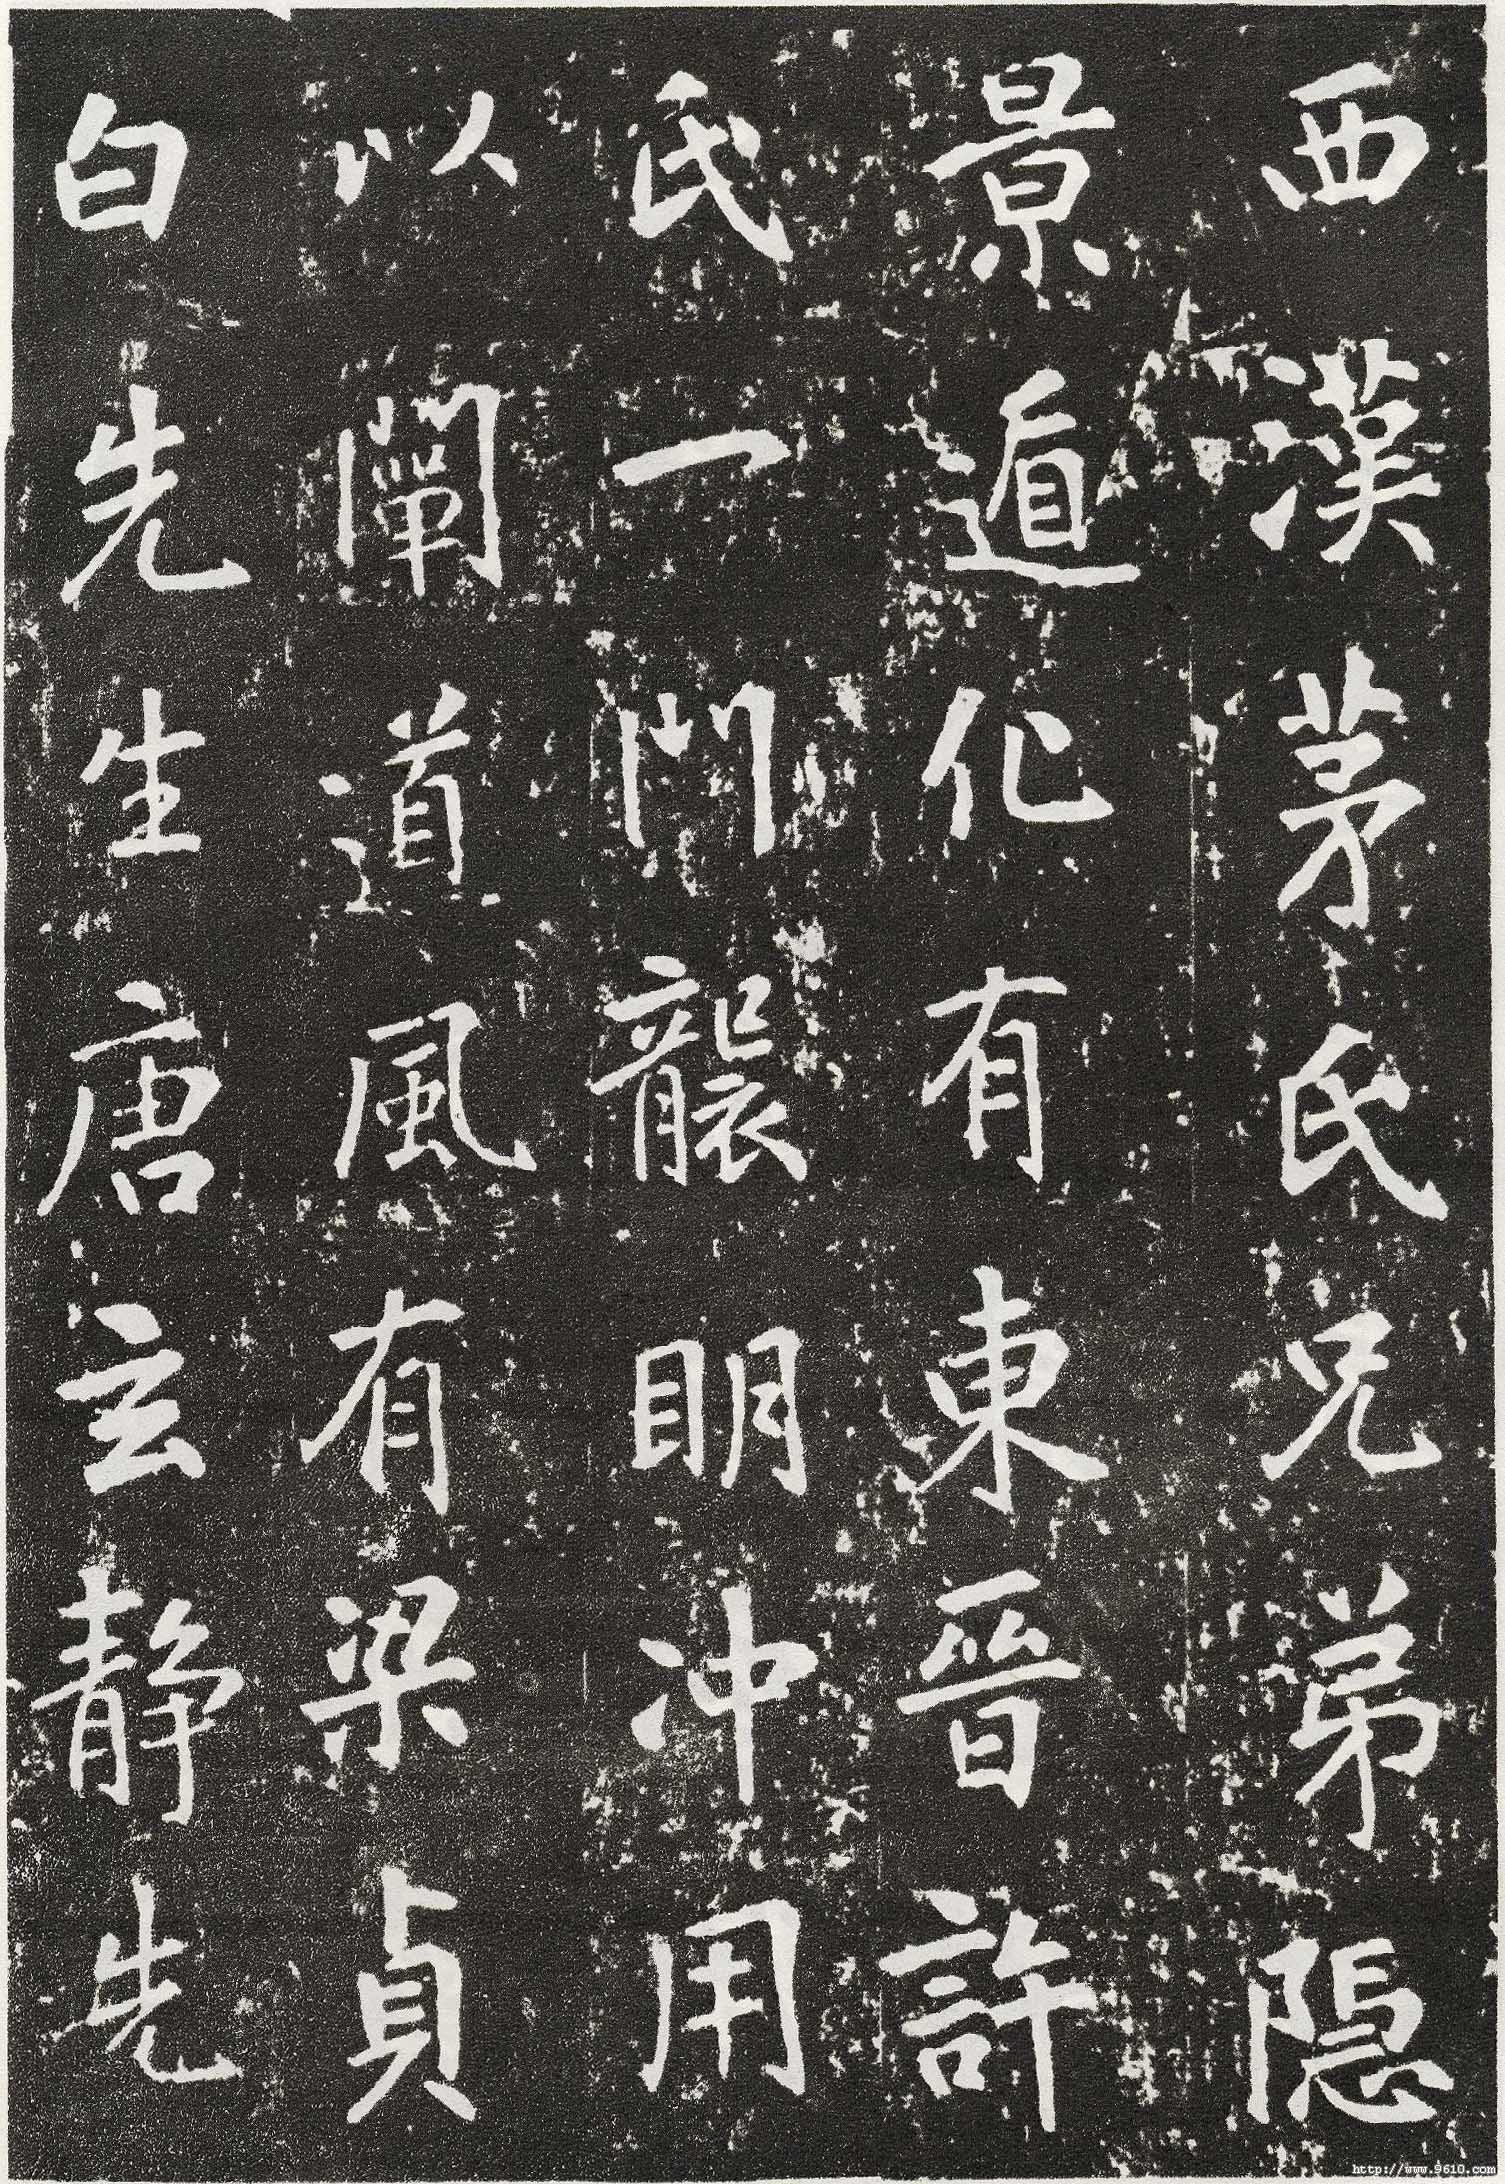 西漢茅氏兄弟隱
景遁化有東晉許
氏一門襲明沖用
以闡道風有梁貞
白先生唐玄静先
http://www.9610.com